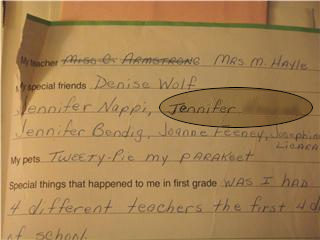 My teacher Miss C. Armstrong Mrs. M. Hayle
My special friends Denise Wolf
Jennifer Nappi, Jennifer
Jennifer Bendig, Joanne Feeney, Josephine
Licara
My pets Tweety-Pie my parakeet
Special things that happened to me in first grade was I had
4 different teachers the first 4 d
of school